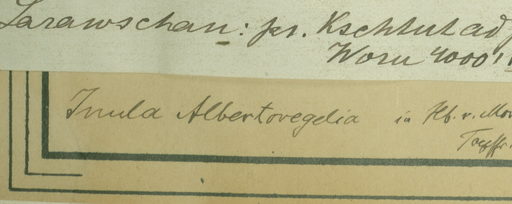 Sarawschan: pr. Kschtut ad
Woru 4000'
Inula Albertoregelia in Hb. v. Mo